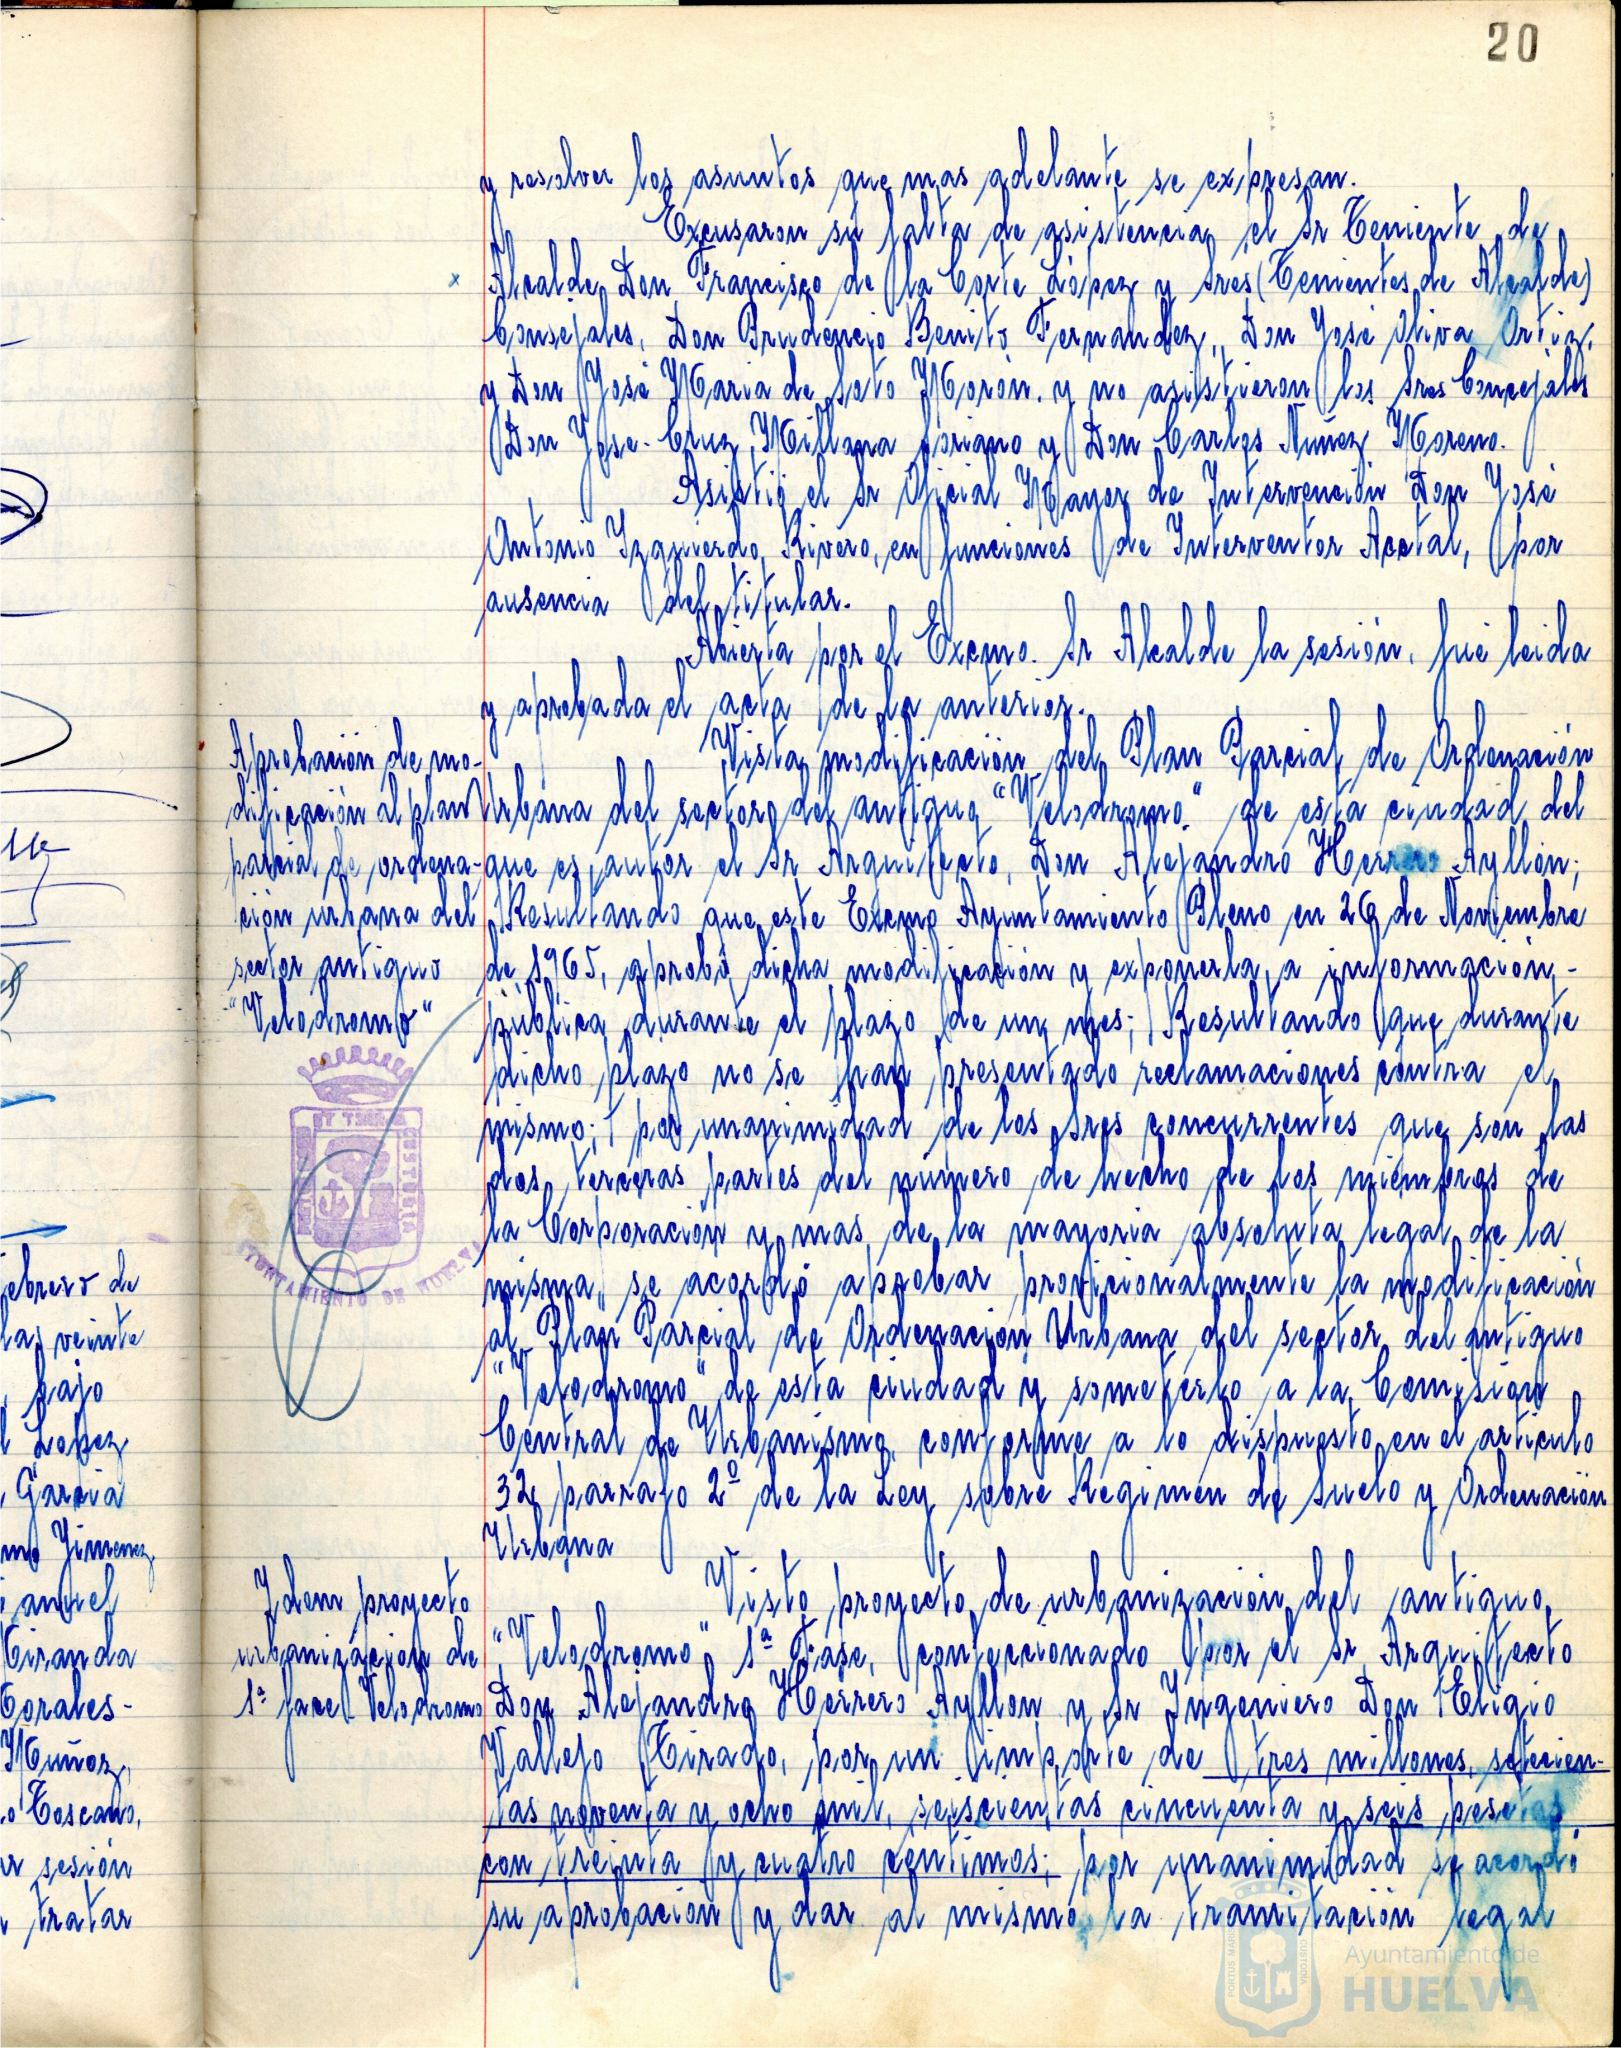 20
y resolver los asuntos que mas adelante se expresan.
Excusaron su falta de asistencia, el Sr Teniente de
Alcalde Don Francisco de la Corte López y Sres (Tenientes de Alcalde)
Consejales, Don Prudencio Benito Fernandez, Don José Oliva Ortiz,
y Don José Maria de Soto Morón. y no asistieron los Sres Concejales
Don Jose-Cruz Millana Soriano y Don Carlos Nuñez Moreno.
Asistió el Sr Oficial Mayor de Intervención Don José
Antonio Izquierdo Rivero, en funciones de Interventor Acctal, por
ausencia del titular.
Abierta por el Excmo. Sr Alcalde la sesión, fué leida
y aprobada el acta de la anterior.
Aprobación de mo-
dificación al plan
parcial de ordena-
ción urbana del
sector antiguo
"Velodromo"
Vista modificación del Plan Parcial de Ordenación
Urbana del sector del antiguo "Velodromo" de esta ciudad del
que es autor el Sr Arquitecto, Don Alejandro Herrero Ayllón;
Resultando que este Excmo Ayuntamiento Pleno en 26 de Noviembre
de 1965, aprobó dicha modificación y exponerla a información-
pública durante el plazo de un mes; Resultando que durante
dicho plazo no se han presentado reclamaciones contra el
mismo; por unanimidad de los Sres concurrentes que son las
dos terceras partes del número de hecho de los miembros de
la Corporación y mas de la mayoria absoluta legal de la
misma, se acordó aprobar provicionalmente la modificación
al Plan Parcial de Ordenación Urbana del sector del antiguo
"Velodromo" de esta ciudad y someterlo a la Comisión
Central de Urbanismo, conforme a lo dispuesto en el articulo
32, parrafo 2º de la Ley sobre Regimen de Suelo y Ordenación
Urbana
Idem proyecto
urbanización de
1ª face Velodromo
Visto proyecto de urbanización del antiguo
"Velodromo" 1ª Fase, confeccionado por el Sr Arquitecto
Don Alejandro Herrero Ayllon y Sr Ingeniero Don Eligio
Vallejo Tirado, por un importe de tres millones, setecien-
tas noventa y ocho mil, seiscientas cincuenta y seis pesetas
con treinta y cuatro centimos; por unanimidad se acordó
su aprobación y dar al mismo la tramitación legal
AYUNTAMIENTO DE HUELVA
ebrero de
las veinte
bajo
l Lopez
, Garcia
mo Jimenez,
anuel
Tiranda
Corales-
Muñoz,
o Toscano,
ar sesión
tratar
PORTUS MARIS
CUSTODIA
Ayuntamiento de
HUELVA